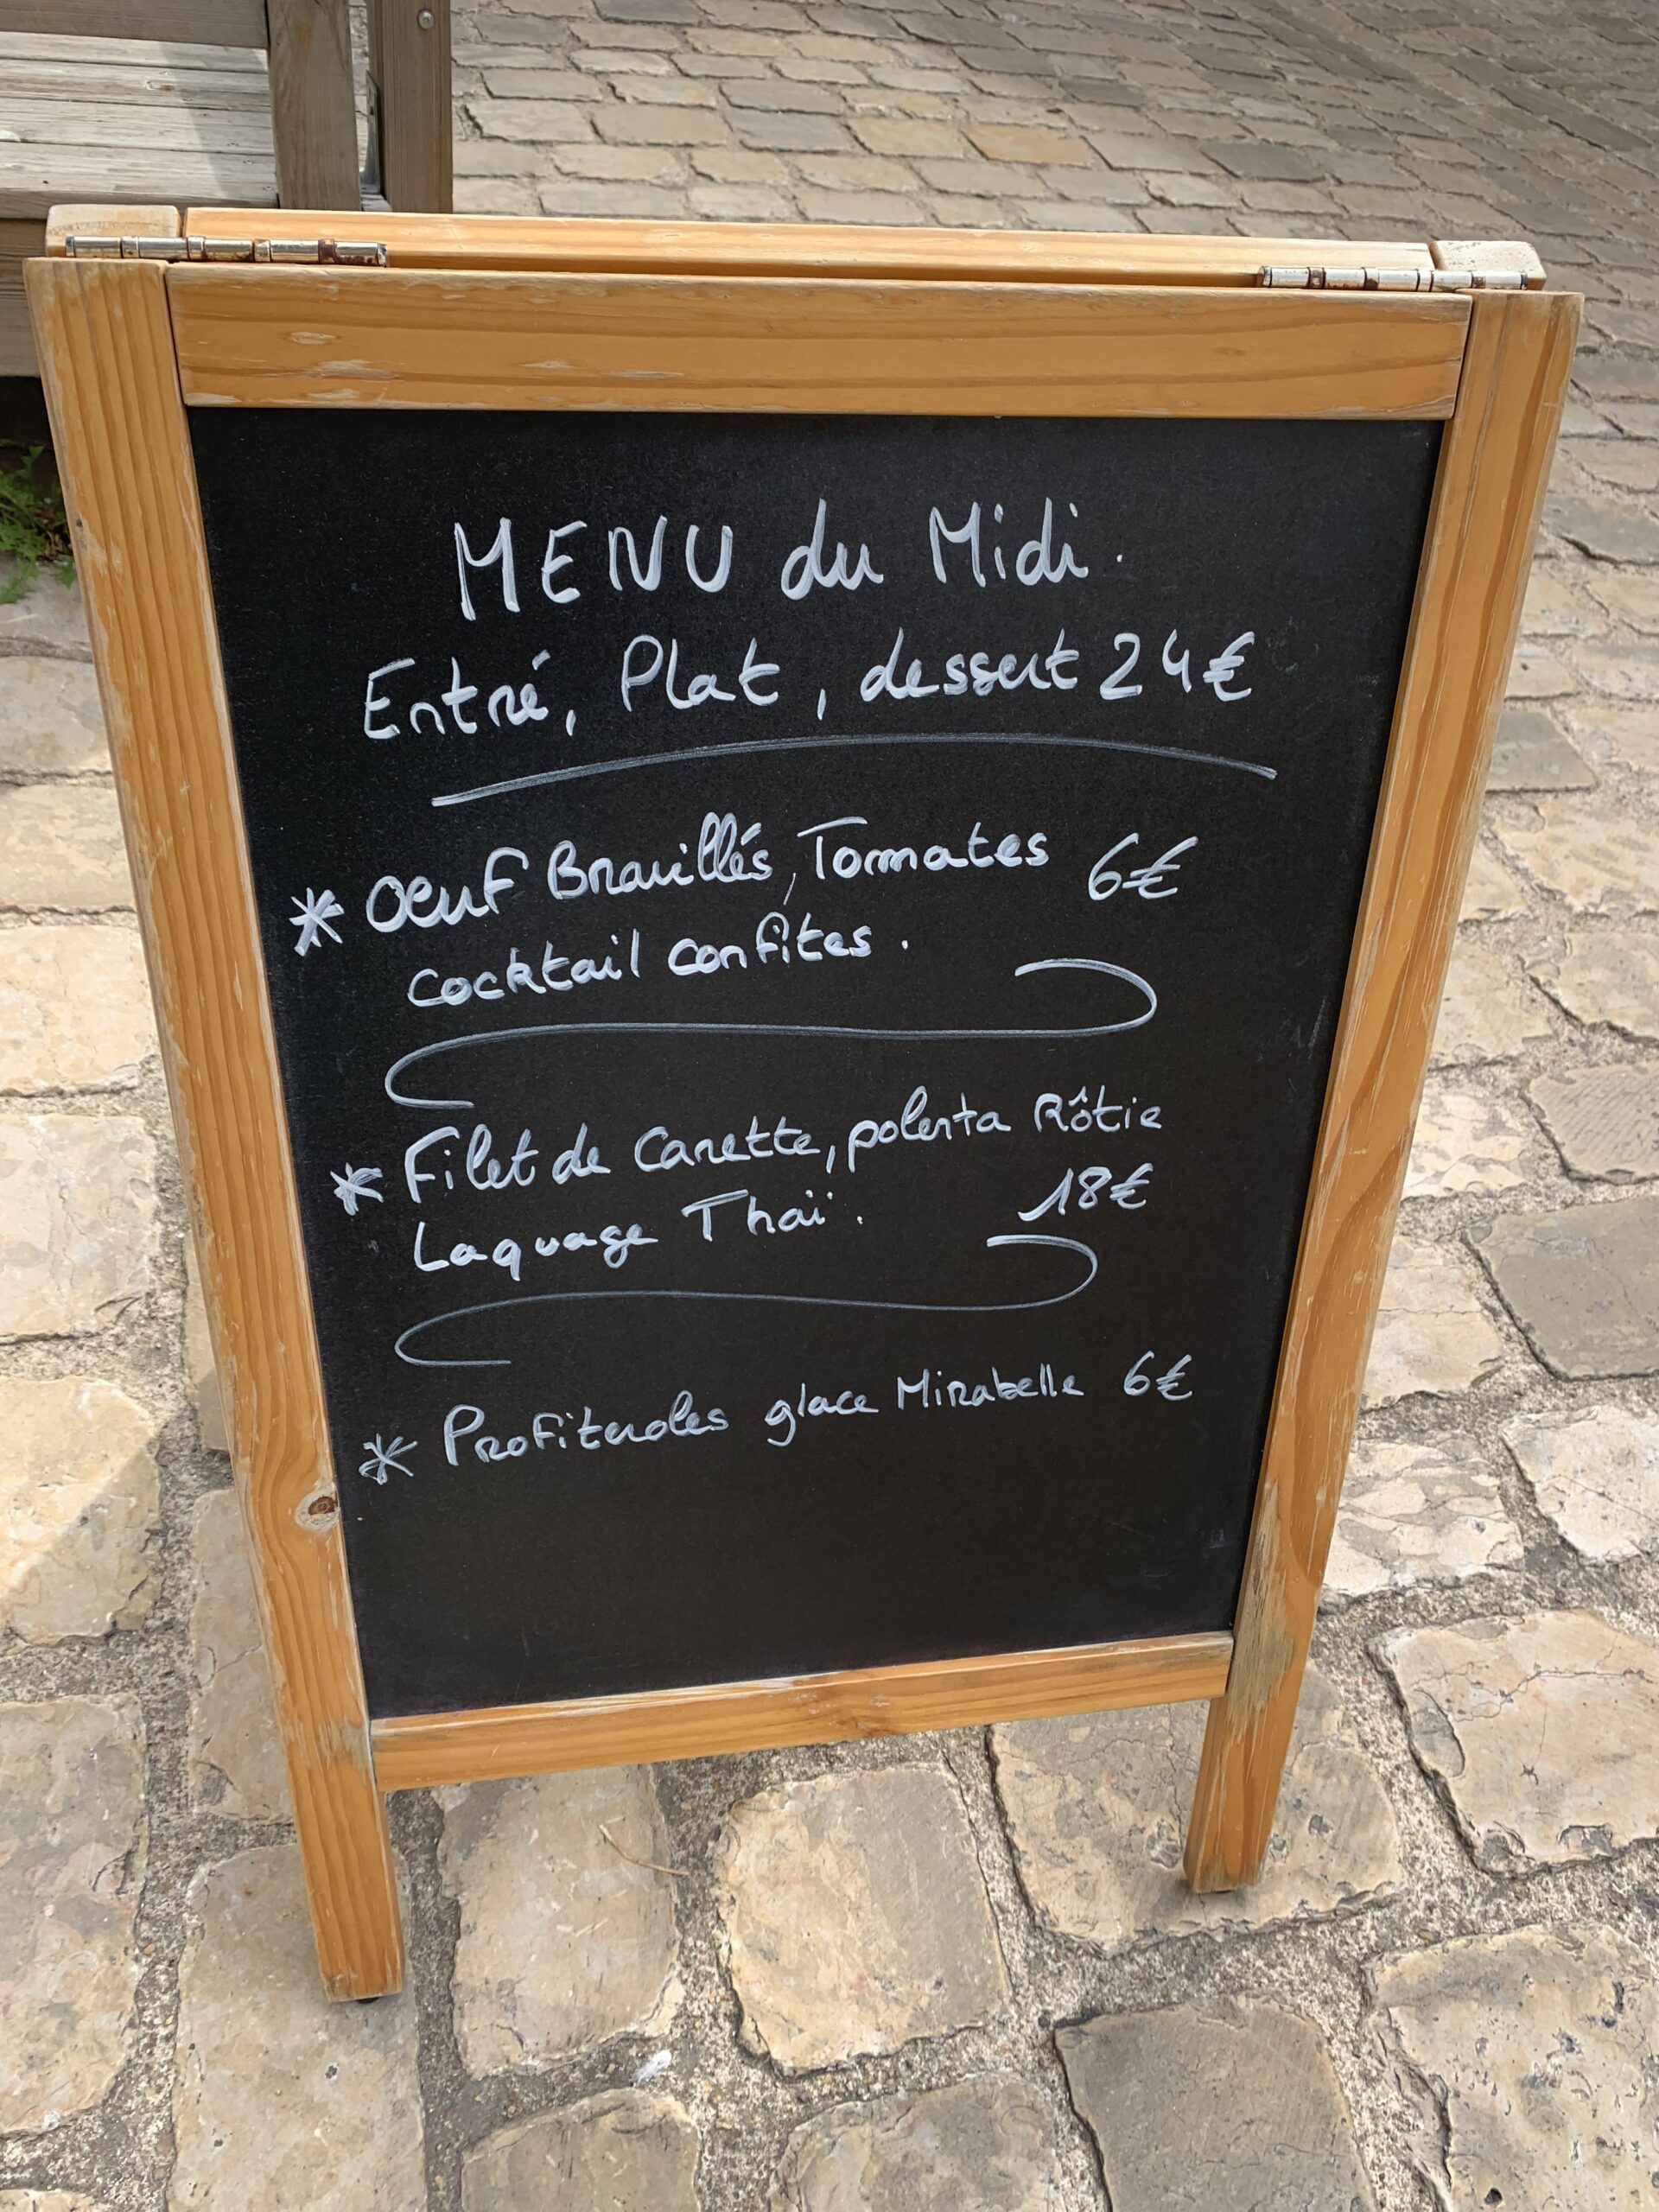 MENU du Midi.
Entré, Plat, dessert 24€
* Oeuf Brouillés, Tomates 6€
cocktail confites.
* Filet de Canette, polenta Rôtie
Laquage Thaï. 18€
* Profiteroles glace Mirabelle 6€